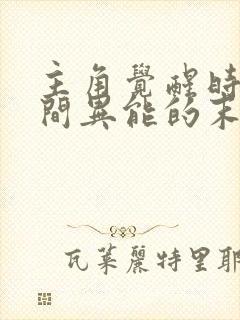 主角覺醒時
間異能的末
瓦萊麗特里耶